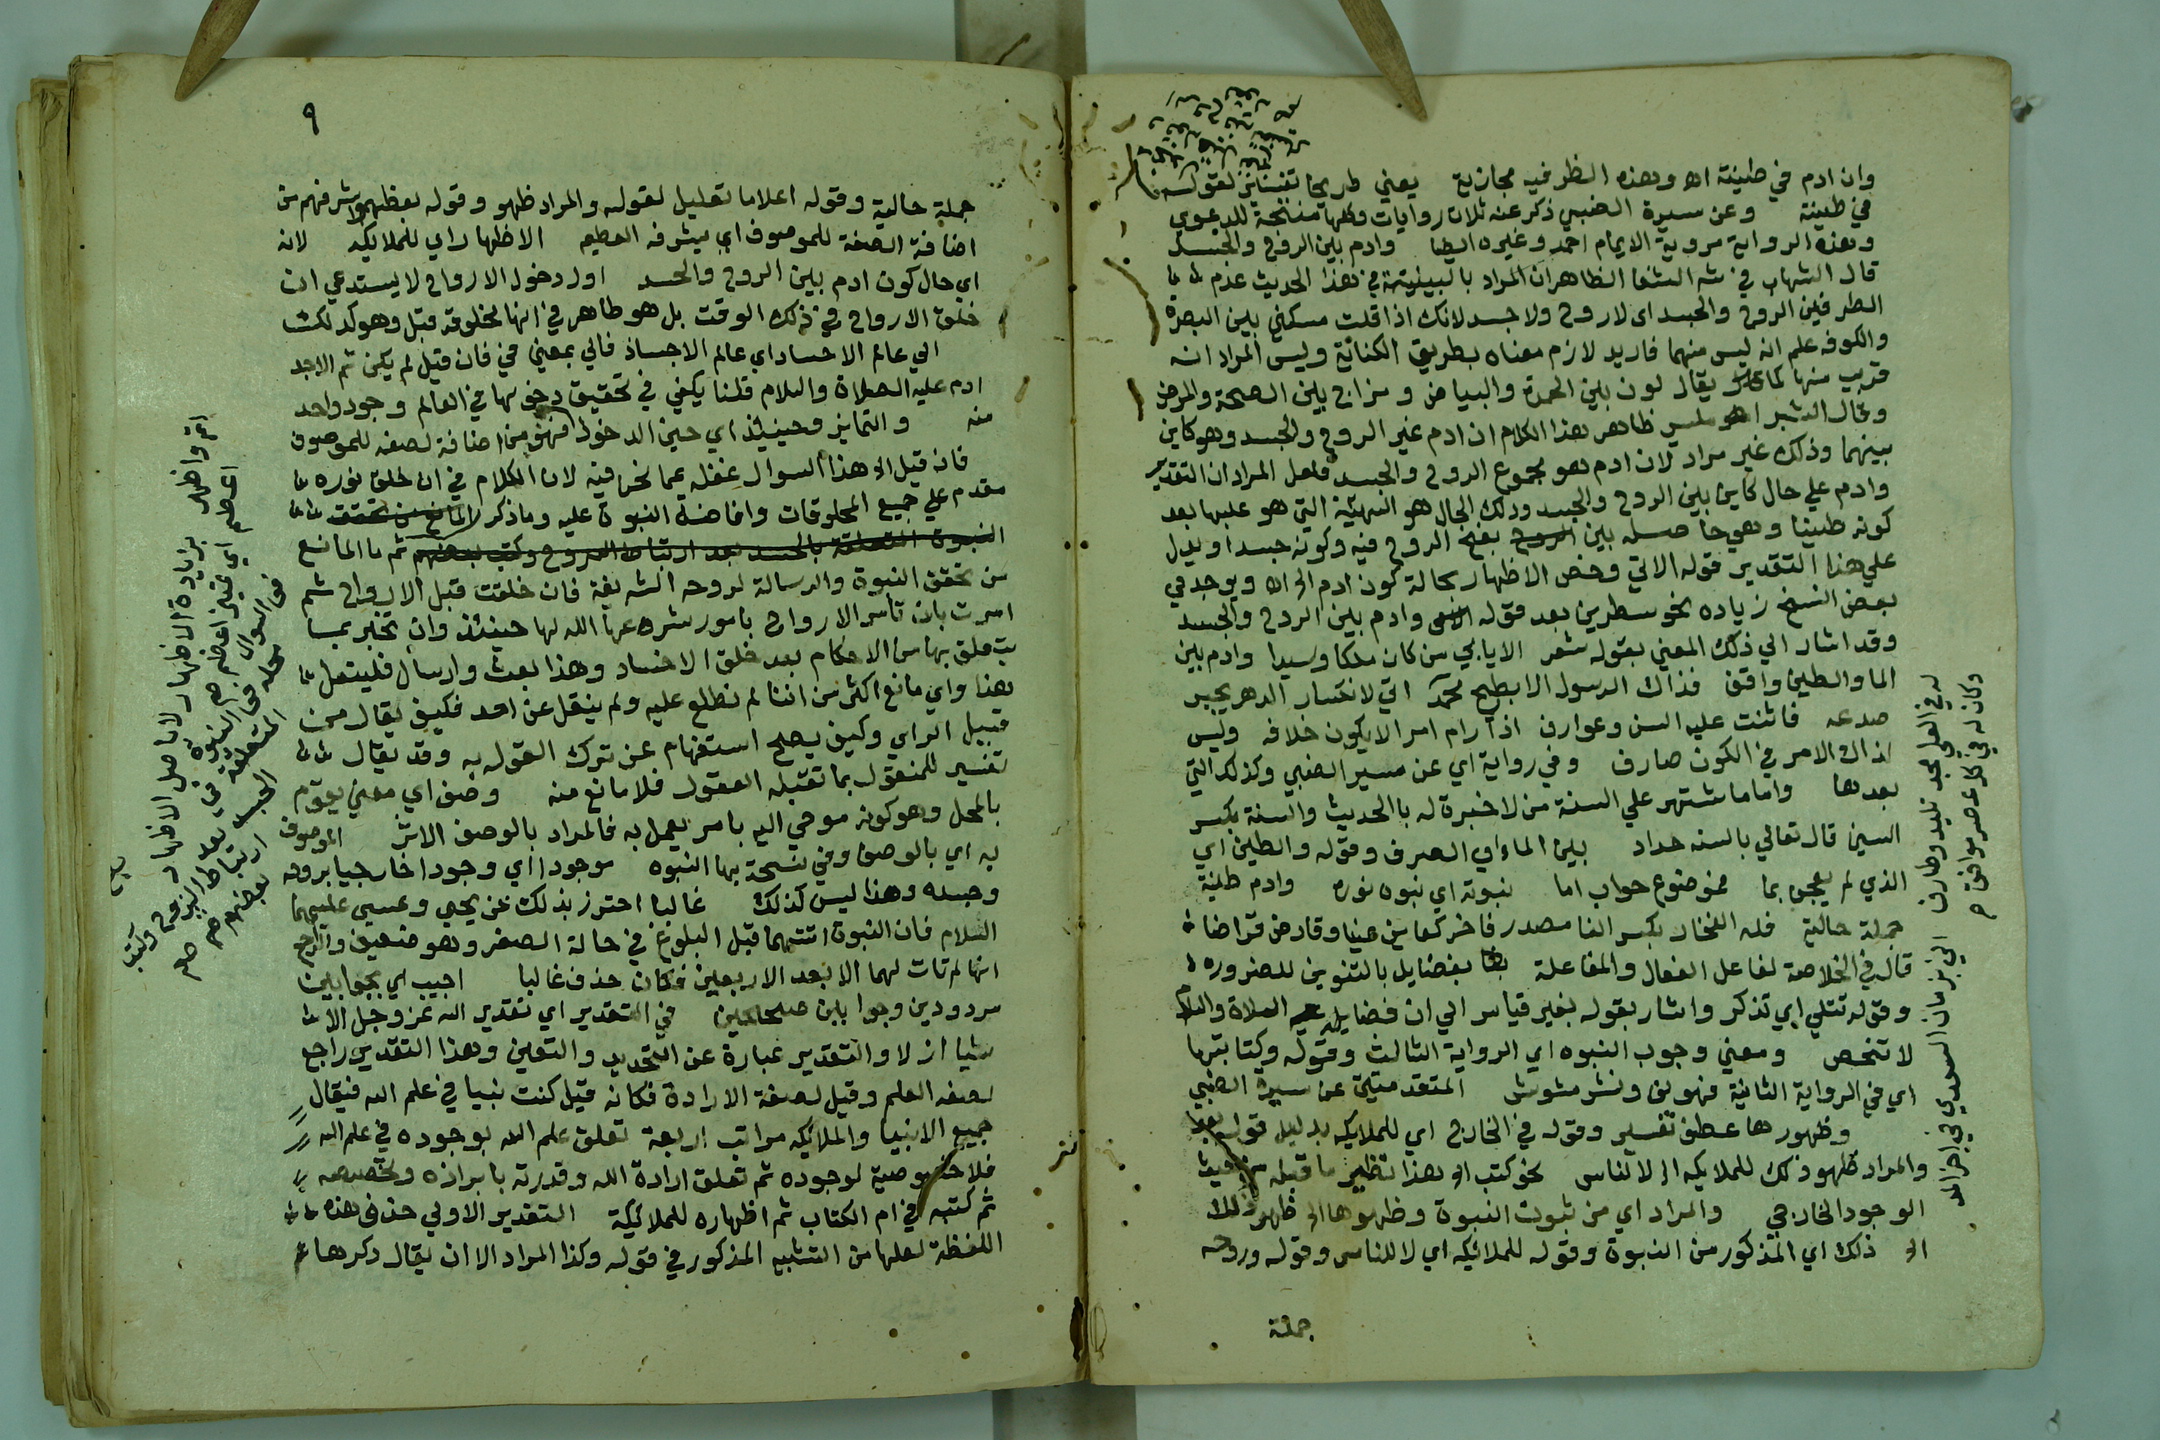 وان ادم في طينته اه وهذه الظرفيه مجازية يعني طريحا تفسيا لقوله
في طينة وعن سيرة الضبي ذكر عنه ثلاث روايات وكلها منتجة للدعوي
وهذه الرواية مروية الايمام احمد وغيره ايضا وادم بين الروح والجسد
قال الشهاب في شه الشفا الظاهر ان المراد بالبينيية في هذا الحديث عدم
الطرفين الروح والجسد اى لا روح ولا جسد لانك اذا قلت مسكني بين البصرة
والكوفه علم انه ليس منهما فاريد لازم معناه بطريق الكناية وليس المراد انه
قريب منها كما يقال لون بين الحمرة والبياض ومزاج بين الصحة والمرض
وقال الشبراملسي ظاهر هذا الكلام ان ادم غير الروح والجسد وهو كاين
بينهما وذلك غير مراد لان ادم هو مجموع الروح والجسد فلعل المراد ان التقدير
وادم علي حال كاين بين الروح والجسد وذلك الحال هو التهيئة التي هو عليها بعد
كونه طينا وهي حاصله بين نفخ الروح فيه وكونه جسدا ويدل
علي هذا التقدير قوله الاتي وخص الاظهار بحالة كون ادم الى اه ويوجد في
بعض النسخ زياده نحو سطرين بعد قوله وادم بين الروح والجسد
وقد اشار الي ذلك المعني بقوله شعر الا يا بي من كان ملكا وسيدا وادم بين
الما والطين واقف فذاك الرسول الابطحي محمد اتي لانكسار الدهر يجبر
صدعه فاثنت عليه السن وعوارف اذا رام امرا لا يكون خلافه وليس
لذاك الامر في الكون صارف وفي رواية اي عن ميسر الضبي وكذلك التي
بعدها واما ما شتهر علي السنة من لا خبرة له بالحديث والسنة بكسر
السين قال تعالي بالسنه حداد بين الما اي الصرف وقوله والطين اي
الذي لم يعجن بما فموضوع جواب اما نبوته اي نبوه نوره وادم طينة
جملة حالية فله الفخار بكسر الفا مصدر فاخر كما من عينا وقارض قراضا
قال في الخلاصة لفاعل الفعال والمفاعلة بفضايل بالتنوين للضروره
وقوله تتلي اي تذكر واشار بقوله بغير قياس الي ان فضايله عليه الصلاة والسلام
لا تنحص ومعني وجوب النبوه اي الرواية الثالث وقوله وكتابتها
اي في الرواية الثانية فهو لف ونشر مشوش المتقدمتين عن سيرة الضبي
وظهورها عطف تفسير وقوله في الخارج اي للملايكه بدليل قوله بعد
والمراد ظهور ذلك للملايكه الى لا للناس نحو كتب اه هذا تنظير ما قبله من حيث
الوجود الخارجي والمراد اي من ثبوت النبوة وظهورها الى ظهور ذلك
الى ذلك اي المذكور من النبوة وقوله للملائكه اي لا للناس وقوله وروحه
جملة
له في العلي مجد تليد وطارف اتي بزمان السعد في اخر المد
وكان له في كل عصر مواقف
٩
جملة حالية وقوله اعلاما تعليل لقوله والمراد ظهور وقوله بعظيم شرفهم من
اضافة الصفة للموصوف اي بشرفه العظيم الاظهار اي للملايكه لانه
اي حال كون ادم بين الروح والجسد اول دخول الارواح لا يستدعي ان
خلق الارواح في ذلك الوقت بل هو ظاهر في انها مخلوقة قبل وهو كذلك
الي عالم الاجساد اي عالم الاجساد فالي بمعني في فان قيل لم يكن ثم الاجسد
ادم عليه الصلاة والسلام قلنا يكفي في تحقيق دخولها في العالم وجود واحد
منه والتمايز وحينئذ اي حين الدخول فهو من اضافة لصفه للموصوف
فان قيل اه هذا السوال غفله عما نحن فيه لان الكلام في ان خلق نوره
مقدم علي جميع المخلوقات وافاضة النبوة عليه وما ذكر لا مانع من تحقق
النبوة المتعلقة بالجسد بعد ارتباط الروح وكتب بعضهم ثم ما المانع
من تحقق النبوة والرسالة لروحه الشريفة فان خلقت قبل الارواح ثم
امرت بان تأمر الارواح بامور شرعها الله لها حينئذ وان تخبر بما
يتعلق بها من الاحكام بعد خلق الاجساد وهذا بعث وارسال فليتعل
هذا واي مانع اكثر من اننا لم نطلع عليه ولم ينقل عن احد فكيف يقال من
قبيل الراي وكيف يصح استفهام عن ترك القول به وقد يقال
تفسير للمنقول بما تقبله العقول فلا مانع منه وصف اي معني يقوم
بالمحل وهو كونه موحي اليه بامر يعمل به فالمراد بالوصف الاثر الموصوف
به اي بالوصف وفي نسخة بها النبوه موجودا اي وجودا خارجيا بروحه
وجسده وهذا ليس كذلك غالبا احترز بذلك عن يحيي وعيسي عليهما
السلام فان النبوة اتتهما قبل البلوغ في حالة الصغر وهو ضعيف والراجح
انها لم تات لهما الا بعد الاربعين فكان حذف غالبا اجيب اي بجوابين
مردودين وجوابين صحيحين في التقدير اي تقدير الله عز وجل الا
شيا ازلا والتقدير عبارة عن التحديد والتعين وهذا التقدير راجع
لصفه العلم وقيل لصفة الارادة فكانه قيل كنت نبيا في علم الله فيقال
جميع الانبيا والملائكه مراتب اربعة تعلق علم الله بوجوده في علم الله
فلا خصوصية لوجوده ثم تعلق ارادة الله وقدرته بابرازه وتخصيصه
ثم كتبه في ام الكتاب ثم اظهاره للملائيكة التقدير الاولي حذف هذه
اللفظة لعلها من التشبيه المذكور في قوله وكذا المراد الا ان يقال ذكرها
اتم واظهر بزيادة الاظهار لا باصل الاظهار
اعظم اي غير اعظم
في السوال محله في النبوة
المتعلقة
الجسد بعد
ارتباط الروح وكتب
بعضهم صح